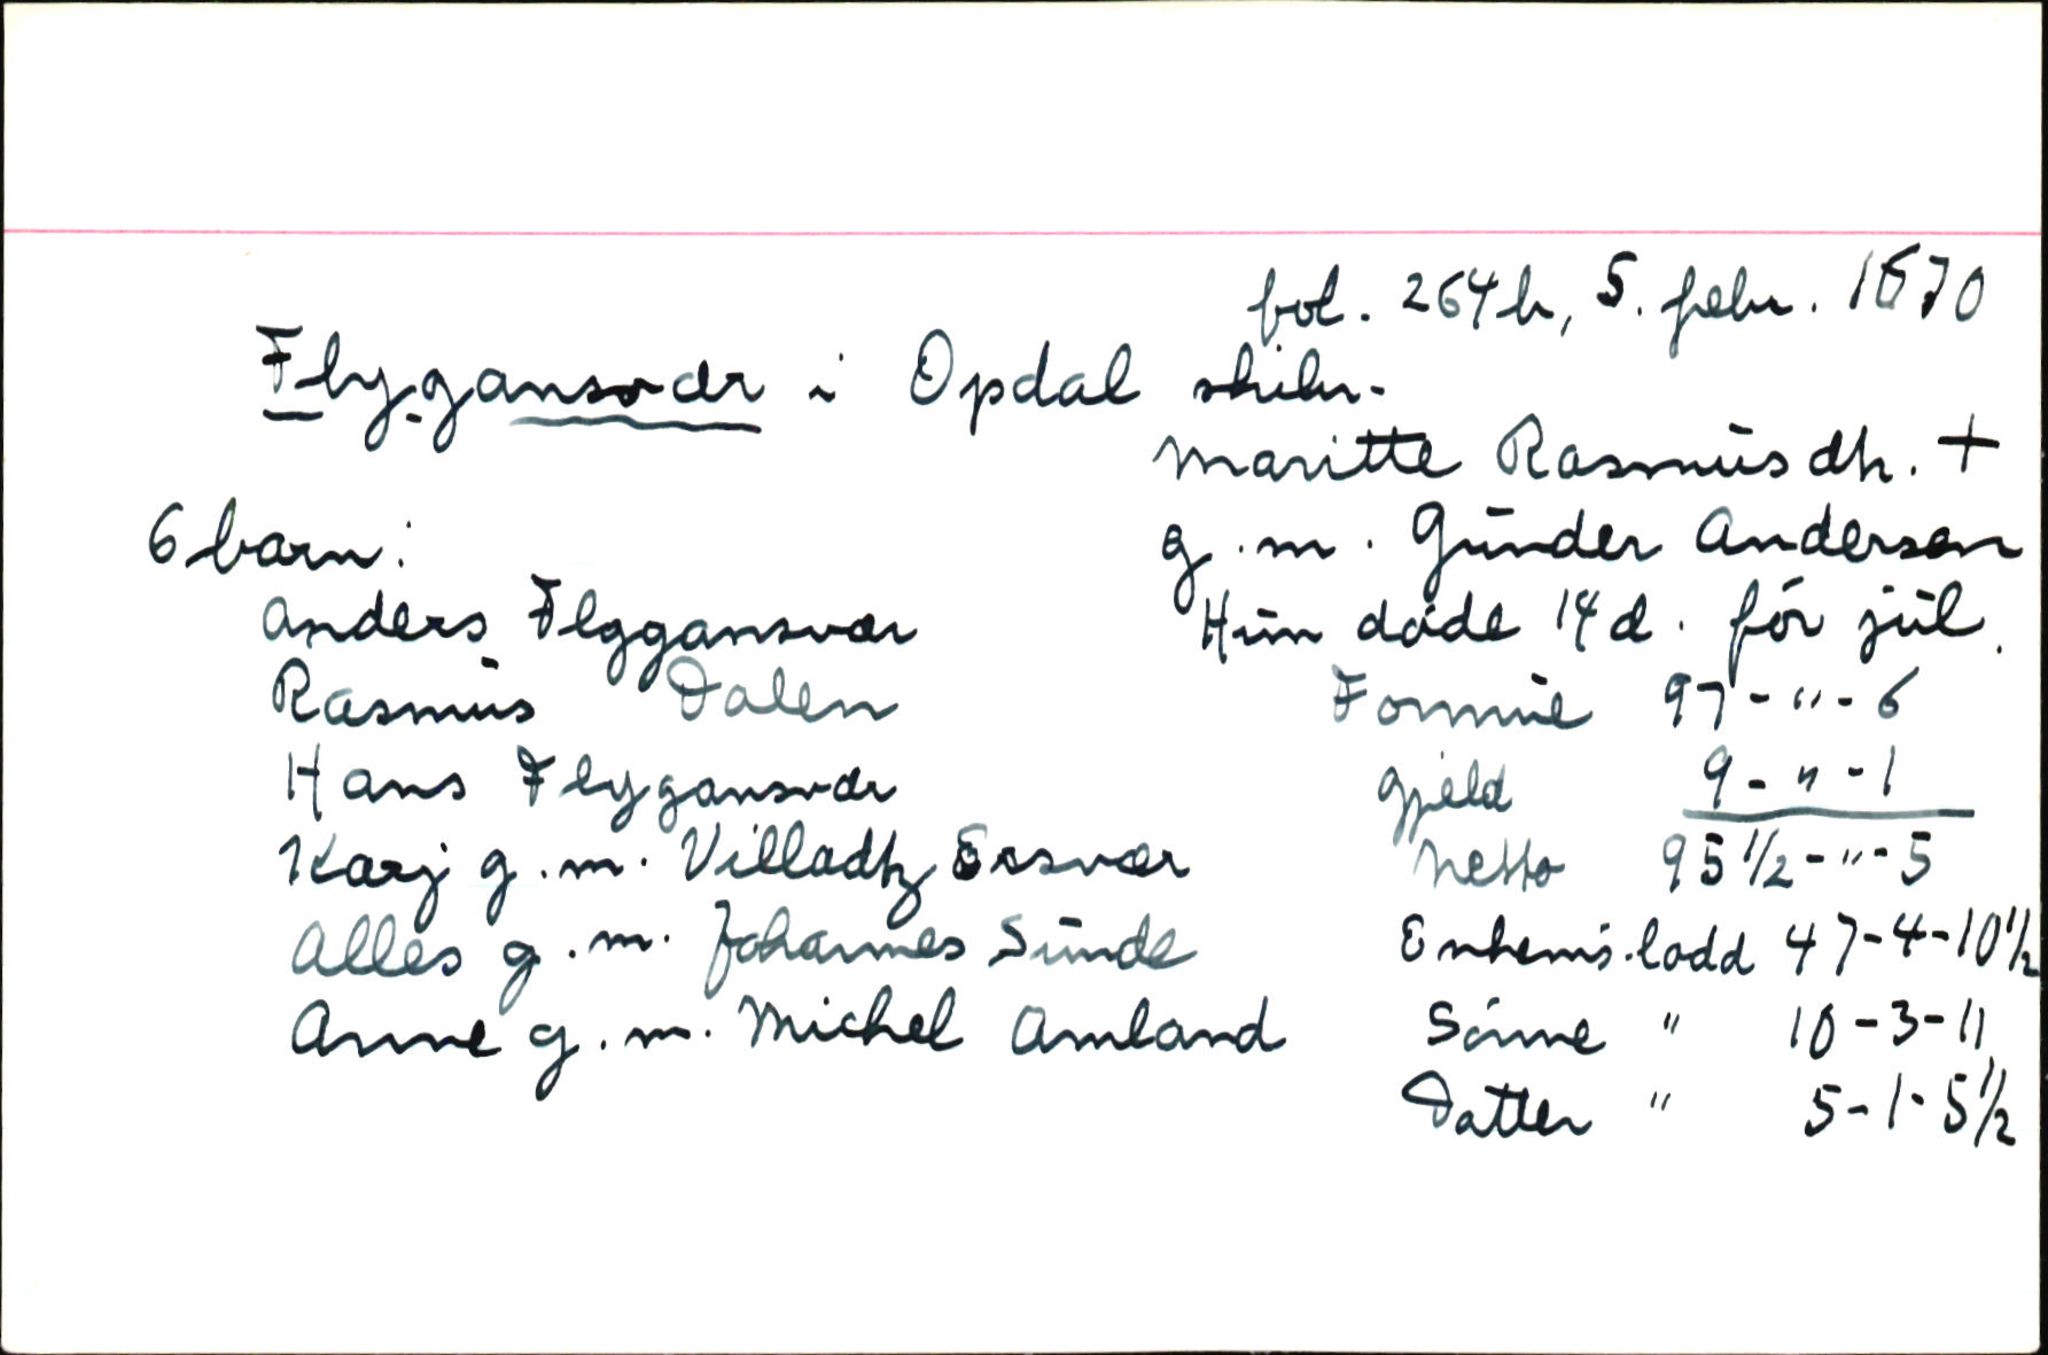 fol. 264b, 5. febr. 1670
Flygansvær i Opdal skibr.
Maritte Rasmusdh. +
g.m. Gunder Andersen
Hun døde 14 d. før jul.
6 barn:
Anders Flyggansvær
Rasmus Dalen
Hans Flygansvær
Karj g.m. Villadtz Ersvær
Alles g.m. Johannes Sunde
Anne g.m. Michel Amland
Formue 97-"-6
Gjeld 9-"-1
Netto 95 1/2-"-5
Enkens lodd 47-4-10 1/2
Sønne " 10-3-11
Datter " 5-1-5 1/2